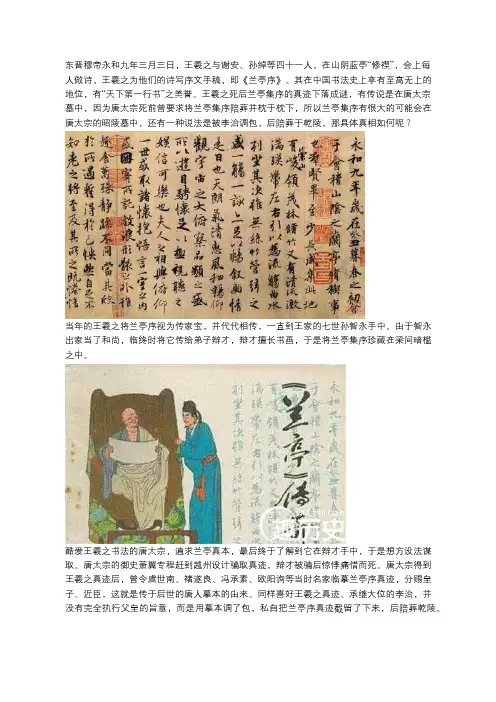 东晋穆帝永和九年三月三日，王羲之与谢安、孙绰等四十一人，在山阴蓝亭“修禊”，会上每
人做诗，王羲之为他们的诗写序文手稿，即《兰亭序》。其在中国书法史上享有至高无上的
地位，有“天下第一行书”之美誉。王羲之死后兰亭集序的真迹下落成谜，有传说是在唐太宗
墓中，因为唐太宗死前曾要求将兰亭集序陪葬并枕于枕下，所以兰亭集序有很大的可能会在
唐太宗的昭陵墓中，还有一种说法是被李治调包，后陪葬于乾陵，那具体真相如何呢？
永和九年歲在癸丑暮春之初會
于會稽山陰之蘭亭脩稧事
也羣賢畢至少長咸集此地
有崇山峻領茂林脩竹又有清流激
湍暎帶左右引以為流觴曲水
列坐其次雖無絲竹管弦之
盛一觴一詠亦足以暢敘幽情
是日也天朗氣清惠風和暢仰
觀宇宙之大俯察品類之盛
所以遊目騁懷足以極視聽之
娛信可樂也夫人之相與俯仰
一世或取諸懷抱悟言一室之內
或因寄所託放浪形骸之外雖
趣舍萬殊靜躁不同當其欣
於所遇蹔得於己怏然自足不
知老之將至及其所之既惓情
当年的王羲之将兰亭序视为传家宝，并代代相传，一直到王家的七世孙智永手中。由于智永
出家当了和尚，临终时将它传给弟子辩才，辩才擅长书画，于是将兰亭集序珍藏在梁间暗槛
之中。
《兰亭》传
趣历史
酷爱王羲之书法的唐太宗，遍求兰亭真本，最后终于了解到它在辩才手中，于是想方设法谋
取。唐太宗的御史萧翼专程赶到越州设计骗取真迹，辩才被骗后惊悸痛惜而死。唐太宗得到
王羲之真迹后，曾令虞世南、褚遂良、冯承素、欧阳询等当时名家临摹兰亭序真迹，分赐皇
子、近臣，这就是传于后世的唐人摹本的由来。同样喜好王羲之真迹、承继大位的李治，并
没有完全执行父皇的旨意，而是用摹本调了包，私自把兰亭序真迹截留了下来，后陪葬乾陵。